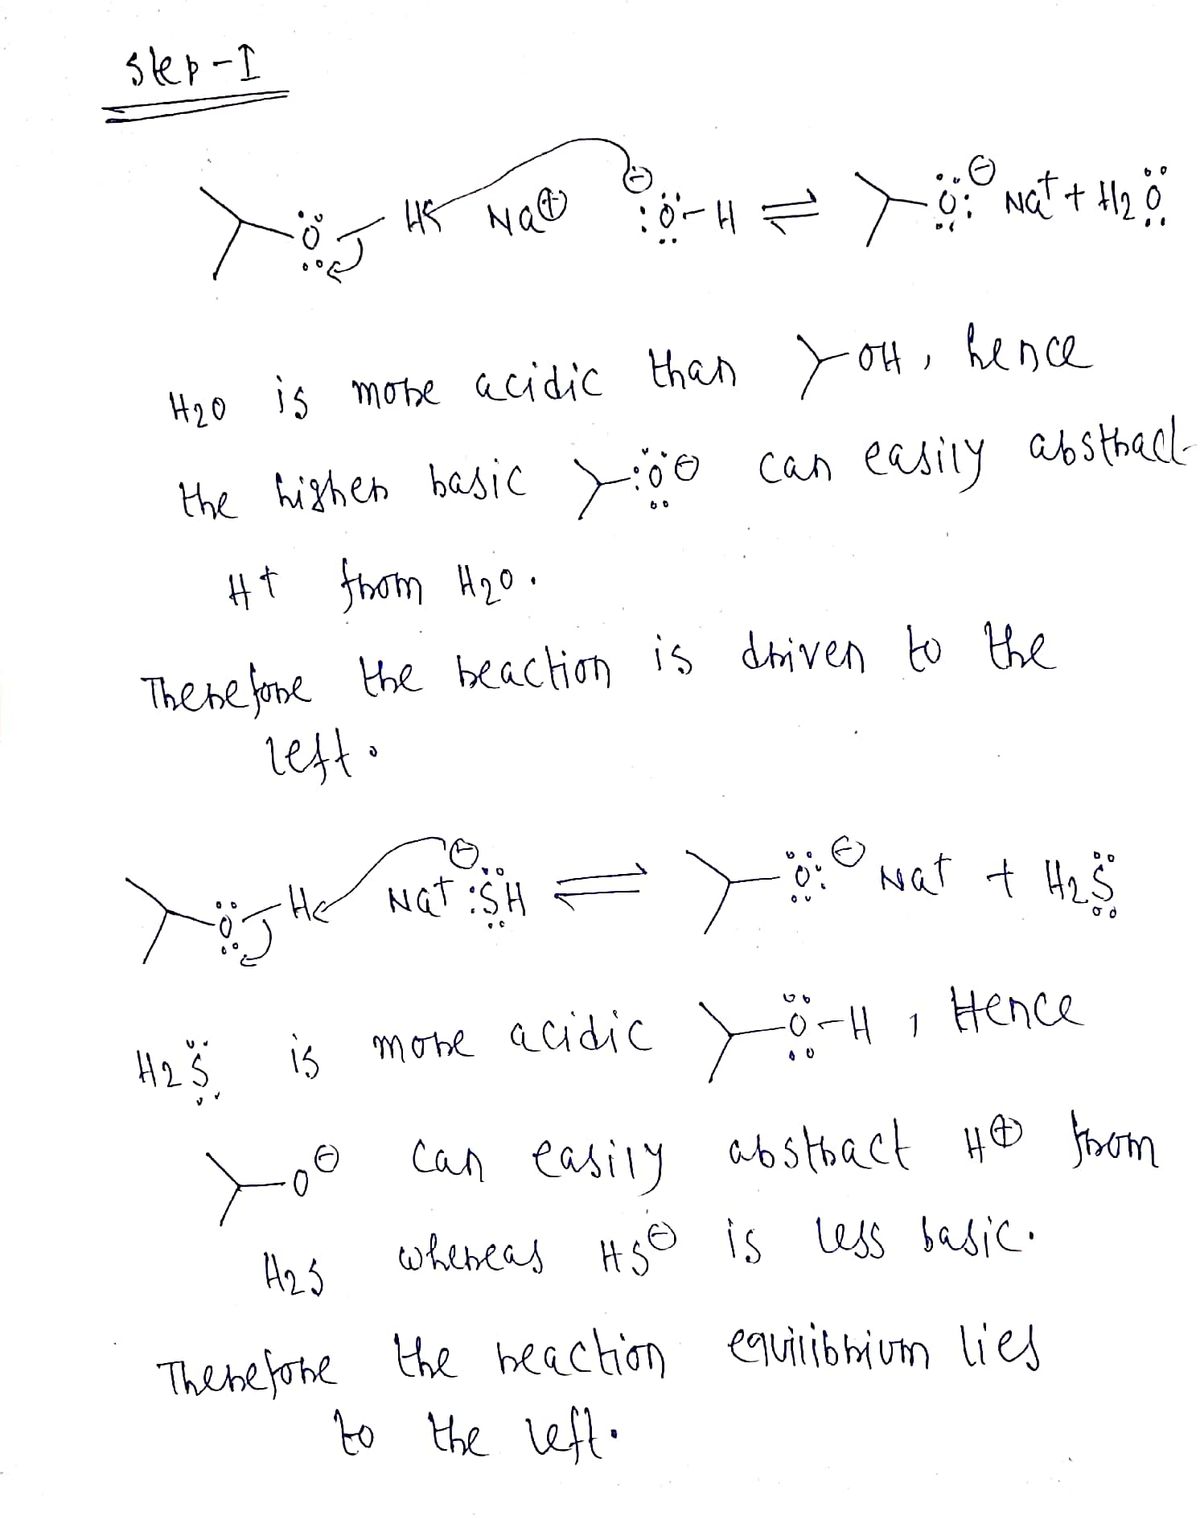 Step-I
Ö - H Na⊕ ⊖:Ö-H ⇌ Ö:⊖ Na+ + H2Ö
H2O is more acidic than OH, hence
the higher basic :Ö⊖ can easily abstract
H+ from H2O.
Therefore the reaction is driven to the
left.
Ö-H Na+ ⊖:SH ⇌ Ö:⊖ Na+ + H2S
H2S is more acidic Ö-H, Hence
O⊖ can easily abstract H⊕ from
H2S whereas HS⊖ is less basic.
Therefore the reaction equilibrium lies
to the left.